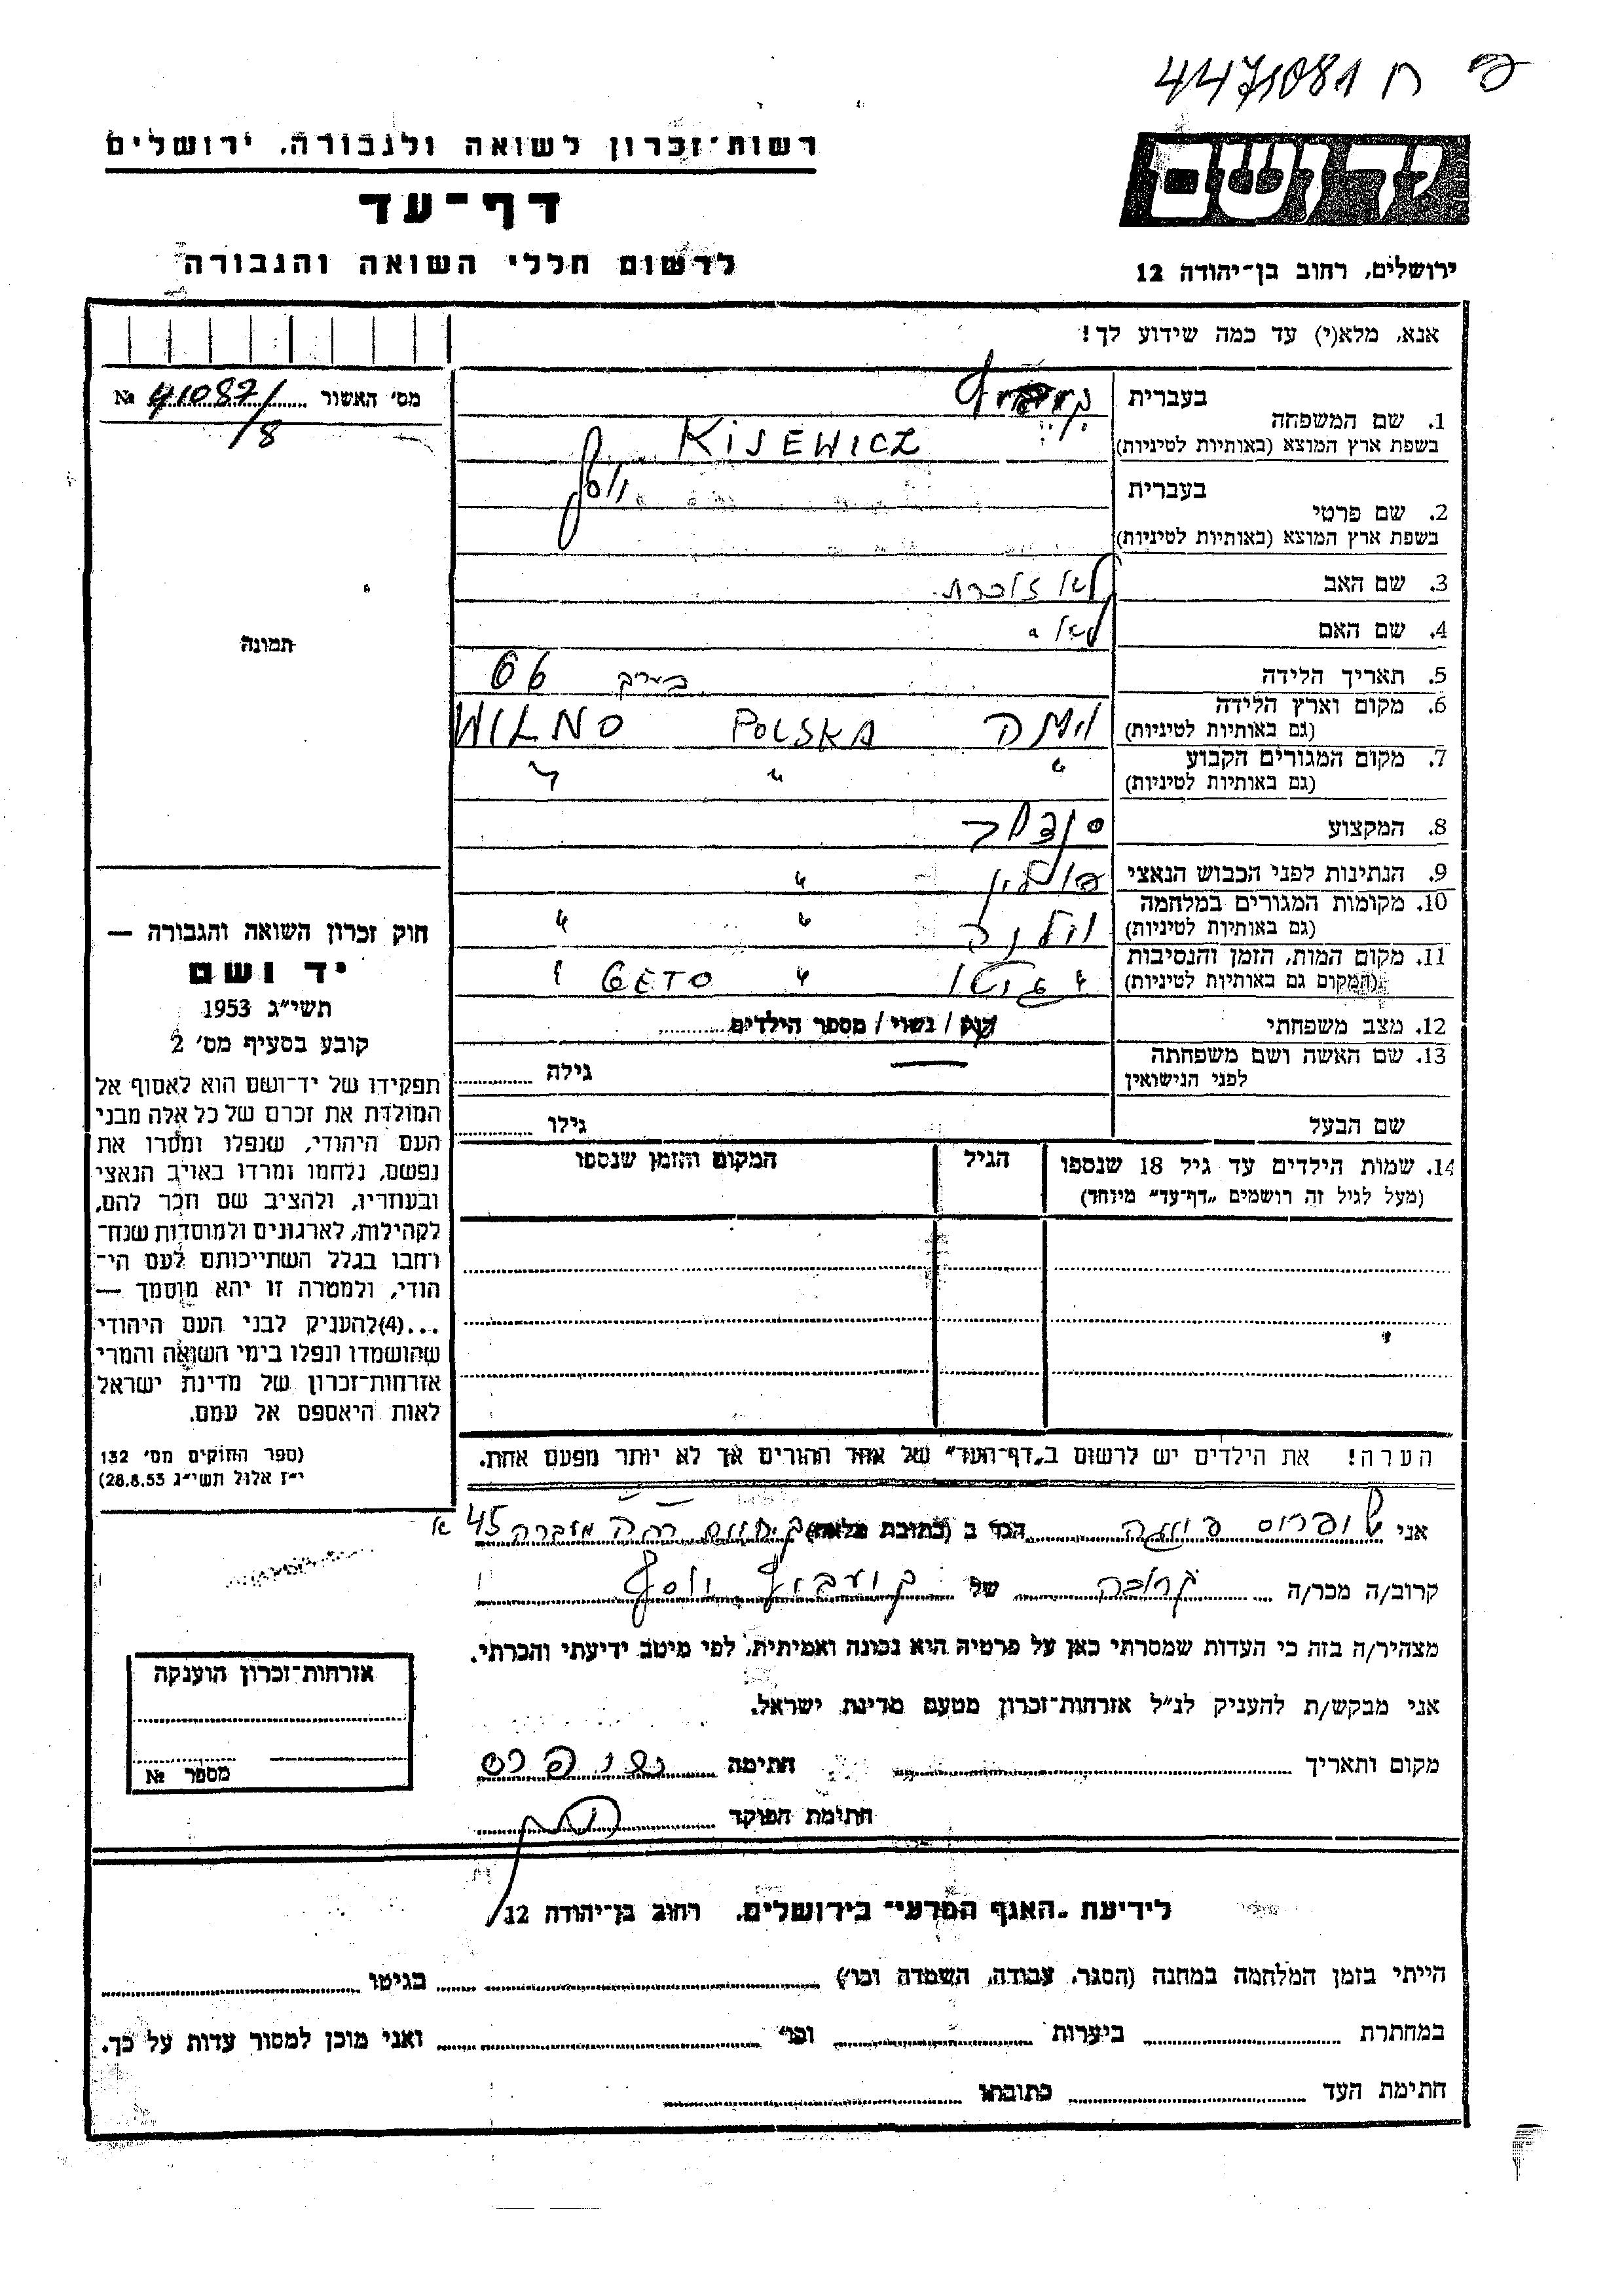 4471081 ח
רשות-זכרון לשואה ולגבורה, ירושלים
דף-עד
לרשום חללי השואה והגבורה
יד ושם
ירושלים, רחוב בן-יהודה 12
אנא, מלא(י) עד כמה שידוע לך!
מס' האשור № 41087/8
1. שם המשפחה
בעברית
בשפת ארץ המוצא (באותיות לטיניות) KISEWICZ
2. שם פרטי
בעברית יוסף
בשפת ארץ המוצא (באותיות לטיניות)
3. שם האב לא זוכרת
4. שם האם לא "
5. תאריך הלידה בערך 66
6. מקום וארץ הלידה
(גם באותיות לטיניות) וילנה POLSKA WILNO
7. מקום המגורים הקבוע
(גם באותיות לטיניות) " " "
8. המקצוע סנדלר
9. הנתינות לפני הכבוש הנאצי פולין "
10. מקומות המגורים במלחמה
(גם באותיות לטיניות) וילנה " "
11. מקום המות, הזמן והנסיבות
(המקום גם באותיות לטיניות) " גיטו " GETO "
12. מצב משפחתי רווק / נשוי / מספר הילדים
13. שם האשה ושם משפחתה
לפני הנישואין — גילה
שם הבעל גילו
14. שמות הילדים עד גיל 18 שנספו
(מעל לגיל זה רושמים "דף-עד" מיוחד)
הגיל
המקום והזמן שנספו
הערה! את הילדים יש לרשום ב"דף-העד" של אחד ההורים אך לא יותר מפעם אחת.
תמונה
חוק זכרון השואה והגבורה —
יד ושם
תשי"ג 1953
קובע בסעיף מס' 2
תפקידו של יד-ושם הוא לאסוף אל
המולדת את זכרם של כל אלה מבני
העם היהודי, שנפלו ומסרו את
נפשם, נלחמו ומרדו באויב הנאצי
ובעוזריו, ולהציב שם וזכר להם,
לקהילות, לארגונים ולמוסדות שנח-
רחבו בגלל השתייכותם לעם הי-
הודי, ולמטרה זו יהא מוסמך —
...(4)להעניק לבני העם היהודי
שהושמדו ונפלו בימי השואה והמרי
אזרחות-זכרון של מדינת ישראל
לאות היאספם אל עמם.
(ספר החוקים מס' 132
י"ז אלול תשי"ג 28.8.53)
אני הגר ב (כתובת מלאה) 45 א
קרוב/ה מכר/ה קרובה של יוסף
מצהיר/ה בזה כי העדות שמסרתי כאן על פרטיה היא נכונה ואמיתית, לפי מיטב ידיעתי והכרתי.
אני מבקש/ת להעניק לנ"ל אזרחות-זכרון מטעם מדינת ישראל.
מקום ותאריך חתימה
חתימת הפוקד
אזרחות-זכרון הוענקה
מספר №
לידיעת "האגף המדעי" בירושלים, רחוב בן-יהודה 12
הייתי בזמן המלחמה במחנה (הסגר, עבודה, השמדה וכו') בגיטו
במחתרת ביערות וכו' ואני מוכן למסור עדות על כך.
חתימת העד כתובתו